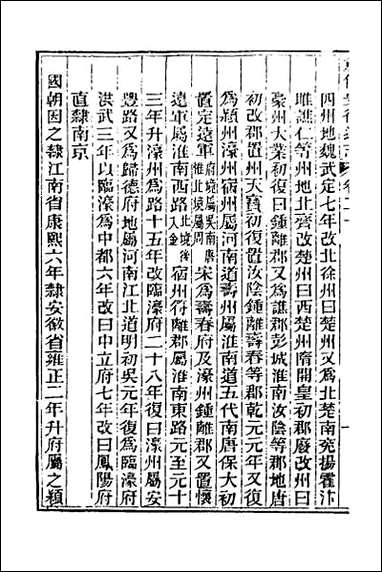 四州地魏武定七年改北徐州曰楚州又爲北楚南兗揚霍汴
睢譙仁等州地北齊改楚州曰西楚州隋開皇初郡廢改州曰
豪州大業初復曰鍾離郡又爲譙郡彭城淮南汝陰等郡地唐
初改郡置州天寶初復改汝陰鍾離壽春等郡乾元元年又復
爲潁州濠州宿州屬河南道壽州屬淮南道五代南唐保大初
置定遠軍府境屬吳南唐惟北境屬周宋爲壽春府及濠州鍾離郡又置懷
遠軍屬淮南西路北境後入金宿州符離郡屬淮南東路元至元十
三年升濠州爲路十五年改臨濠府二十八年復曰濠州屬安
豐路又爲歸德府地屬河南江北道明初吳元年復爲臨濠府
洪武三年以臨濠爲中都六年改曰中立府七年改曰鳳陽府
直隸南京
國朝因之隸江南省康熙六年隸安徽省雍正二年升府屬之潁